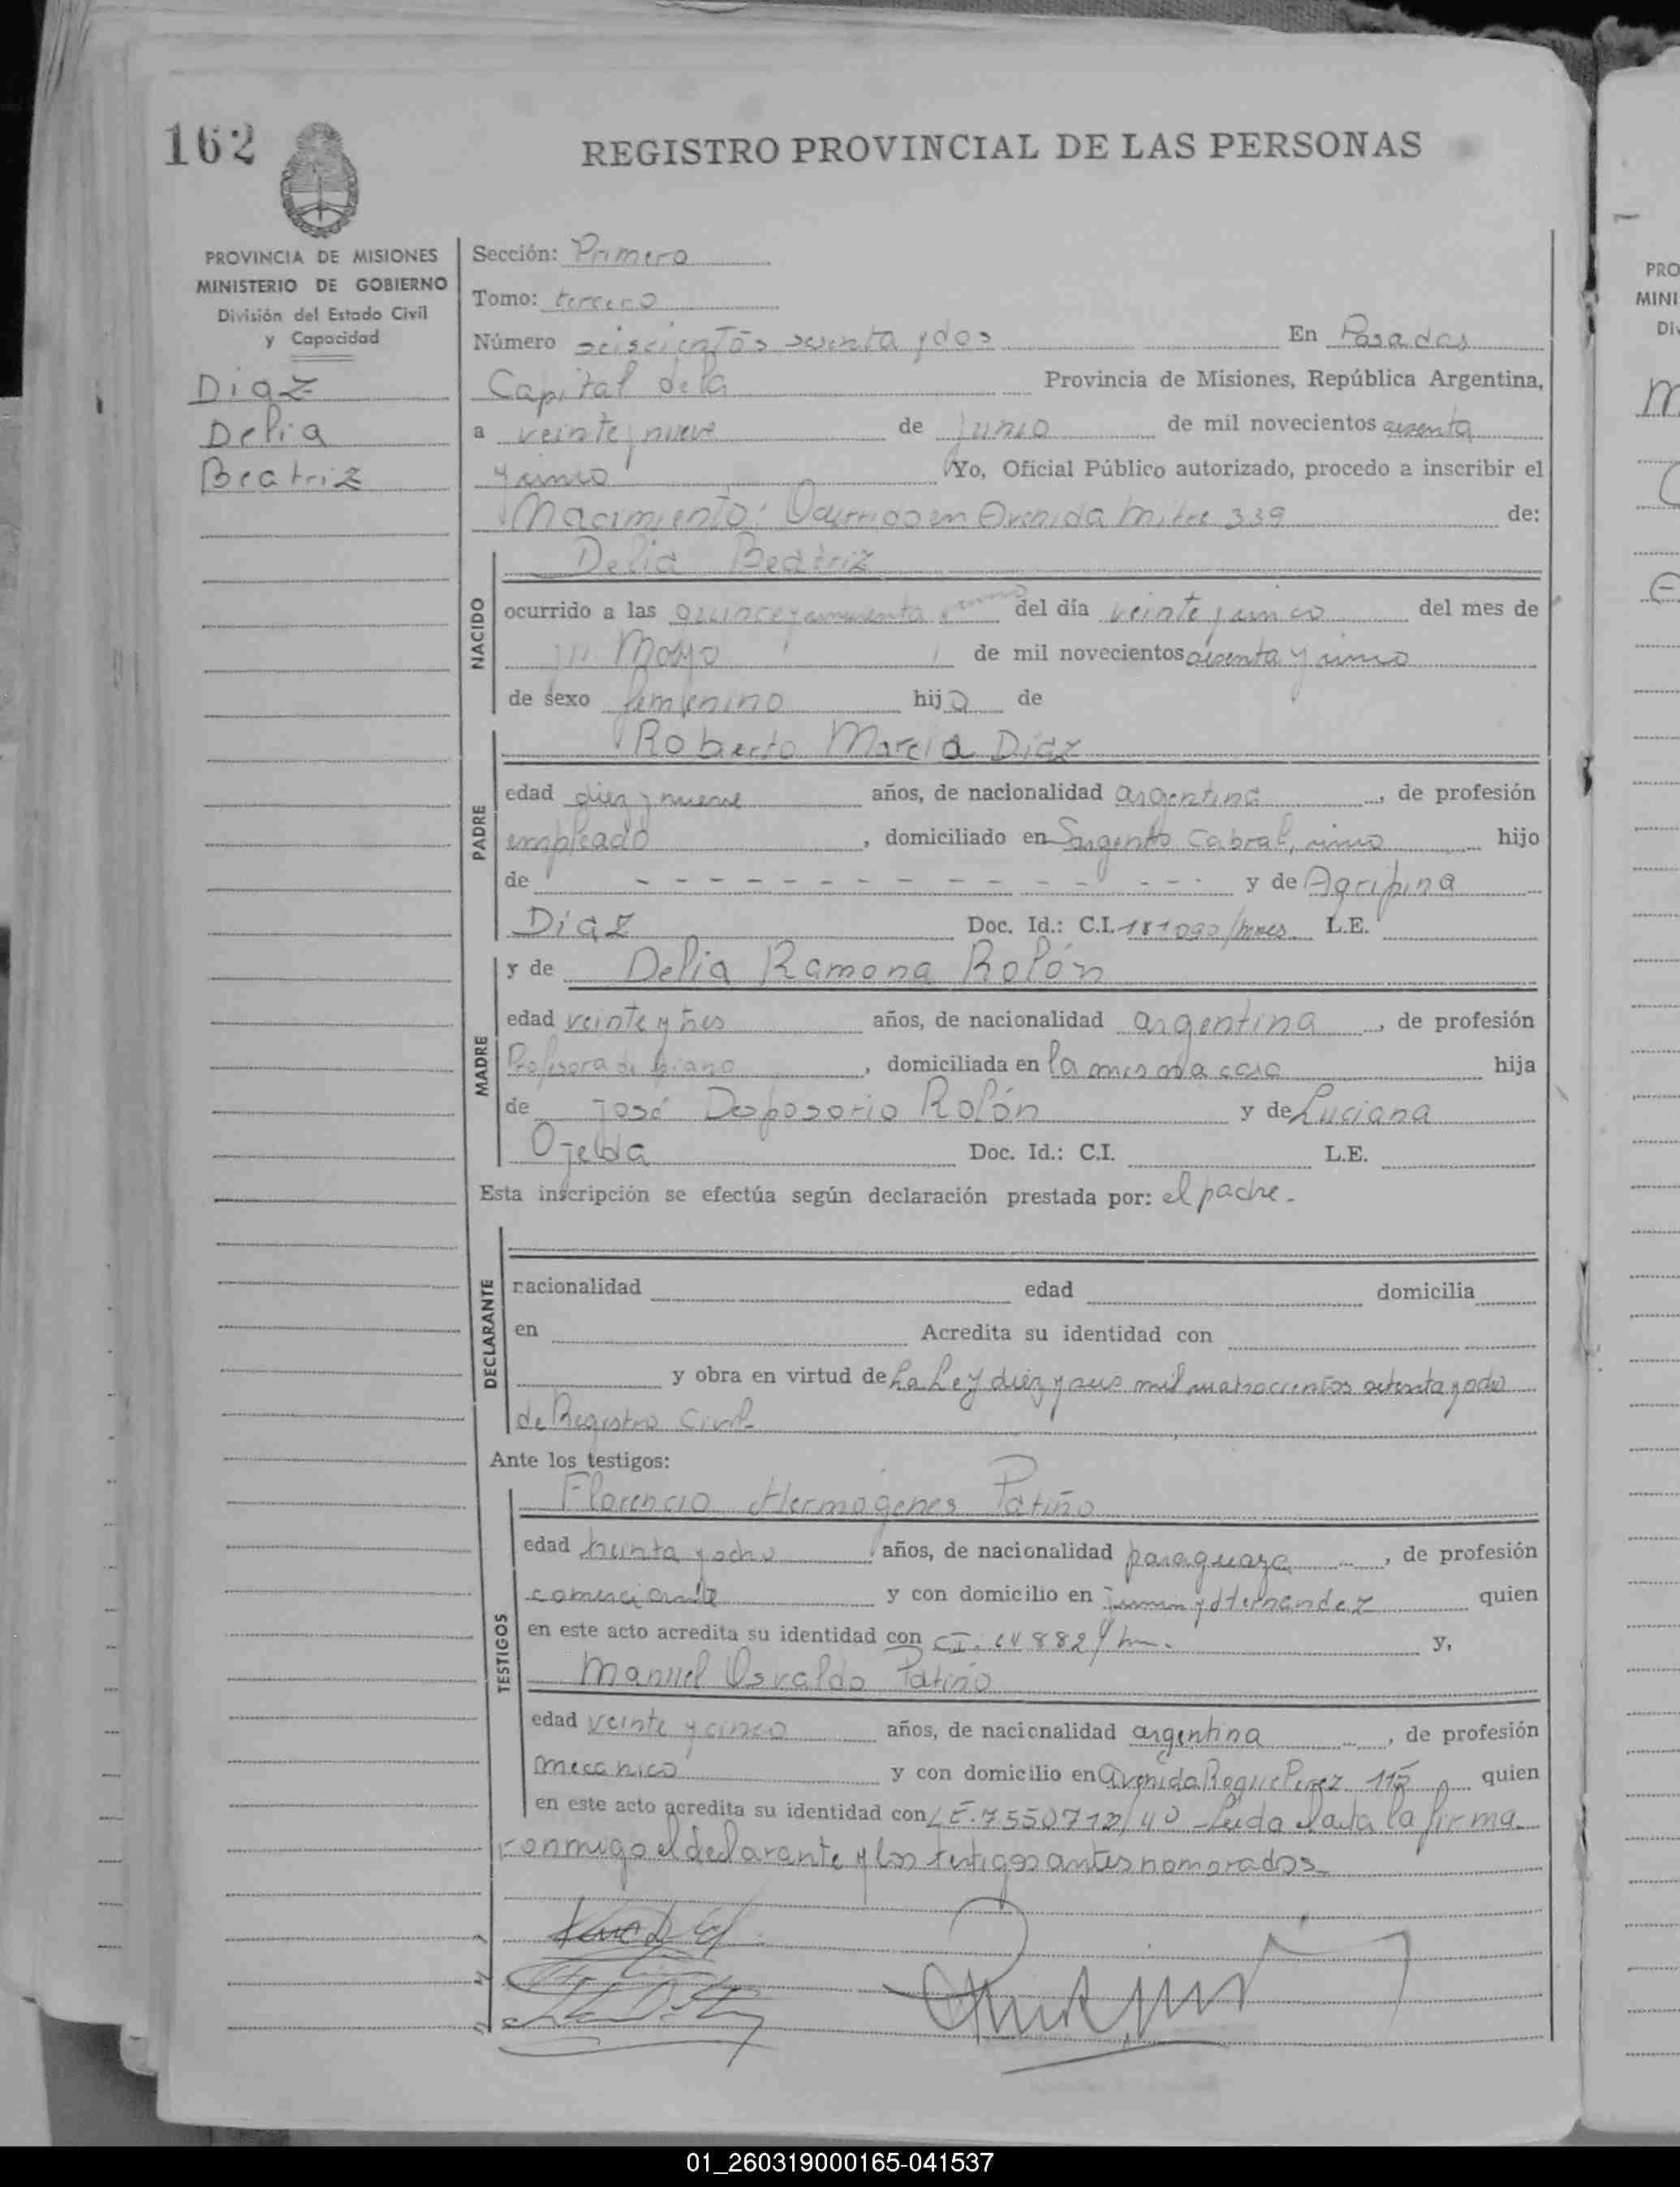 162
REGISTRO PROVINCIAL DE LAS PERSONAS
PROVINCIA DE MISIONES
MINISTERIO DE GOBIERNO
División del Estado Civil
y Capacidad
Diaz
Delia
Beatriz
Sección: Primera
Tomo: tercero
Número seiscientos sesenta y dos En Posadas
Capital de la Provincia de Misiones, República Argentina,
a veinte y nueve de junio de mil novecientos sesenta
y cinco Yo, Oficial Público autorizado, procedo a inscribir el
Nacimiento: Ocurrido en Avenida Mitre 339 de:
NACIDO
Delia Beatriz
ocurrido a las quince y cincuenta y cinco del día veinte y cinco del mes de
Mayo de mil novecientos sesenta y cinco
de sexo femenino hija de
PADRE
Roberto Marcia Diaz
edad diez y nueve años, de nacionalidad argentina, de profesión
empleado, domiciliado en Sargento Cabral, cinco hijo
de - - - - - - - - - - - - - - y de Agripina
Díaz Doc. Id.: C.I. 181090/mnes L.E.
MADRE
y de Delia Ramona Rolón
edad veinte y tres años, de nacionalidad argentina, de profesión
Profesora de piano, domiciliada en la misma casa hija
de José Desposorio Rolón y de Luciana
Ojelda Doc. Id.: C.I. L.E.
Esta inscripción se efectúa según declaración prestada por: el padre.
DECLARANTE
nacionalidad edad domicilia
en Acredita su identidad con
y obra en virtud de La Ley diez y seis mil cuatrocientos setenta y ocho
de Registro Civil
Ante los testigos:
TESTIGOS
Florencio Hermógenes Patiño
edad treinta y ocho años, de nacionalidad paraguaya, de profesión
comerciante y con domicilio en y Hernandez quien
en este acto acredita su identidad con C.I. y,
Manuel Osvaldo Patiño
edad veinte y cinco años, de nacionalidad argentina, de profesión
mecánico y con domicilio en Avenida Roque Perez 115 quien
en este acto acredita su identidad con L.E. 7550712/40 - Leída el acta la firma
conmigo el declarante y los testigos antes nomorados
PRO
MINI
Di
01_260319000165-041537